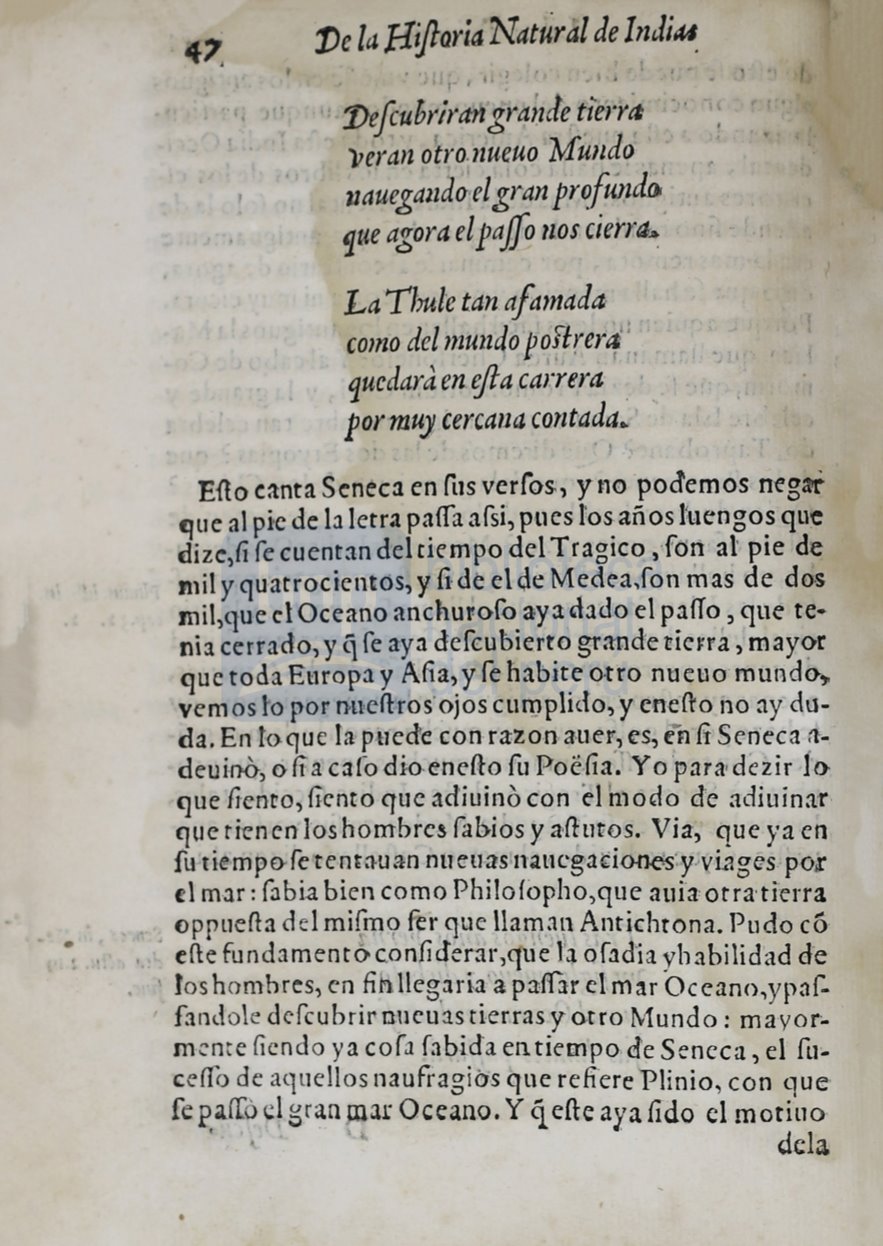 47 De la Hiſtoria Natural de Indias
Deſcubriran grande tierra
veran otro nueuo Mundo
nauegando el gran profundo
que agora el paſſo nos cierra.
La Thule tan afamada
como del mundo poſtrera
quedarà en eſta carrera
por muy cercana contada.
Eſto canta Seneca en ſus verſos, y no podemos negar
que al pie de la letra paſſa aſsi, pues los años luengos que
dize, ſi ſe cuentan del tiempo del Tragico, ſon al pie de
mil y quatrocientos, y ſi de el de Medea, ſon mas de dos
mil, que el Oceano anchuroſo aya dado el paſſo, que te-
nia cerrado, y q̃ ſe aya deſcubierto grande tierra, mayor
que toda Europa y Aſia, y ſe habite otro nueuo mundo,
vemos lo por nueſtros ojos cumplido, y eneſto no ay du-
da. En lo que la puede con razon auer, es, en ſi Seneca a-
deuinò, o ſi a caſo dio eneſto ſu Poëſia. Yo para dezir lo
que ſiento, ſiento que adiuinò con el modo de adiuinar
que tienen los hombres ſabios y aſtutos. Via, que ya en
ſu tiempo ſe tentauan nueuas nauegaciones y viages por
el mar: ſabia bien como Philoſopho, que auia otra tierra
oppueſta del miſmo ſer que llaman Antichtona. Pudo cõ
eſte fundamento conſiderar, que la oſadia y habilidad de
los hombres, en fin llegaria a paſſar el mar Oceano, y paſ-
ſandole deſcubrir nueuas tierras y otro Mundo: mayor-
mente ſiendo ya coſa ſabida en tiempo de Seneca, el ſu-
ceſſo de aquellos naufragiòs que refiere Plinio, con que
ſe paſſò el gran mar Oceano. Y q̃ eſte aya ſido el motiuo
dela